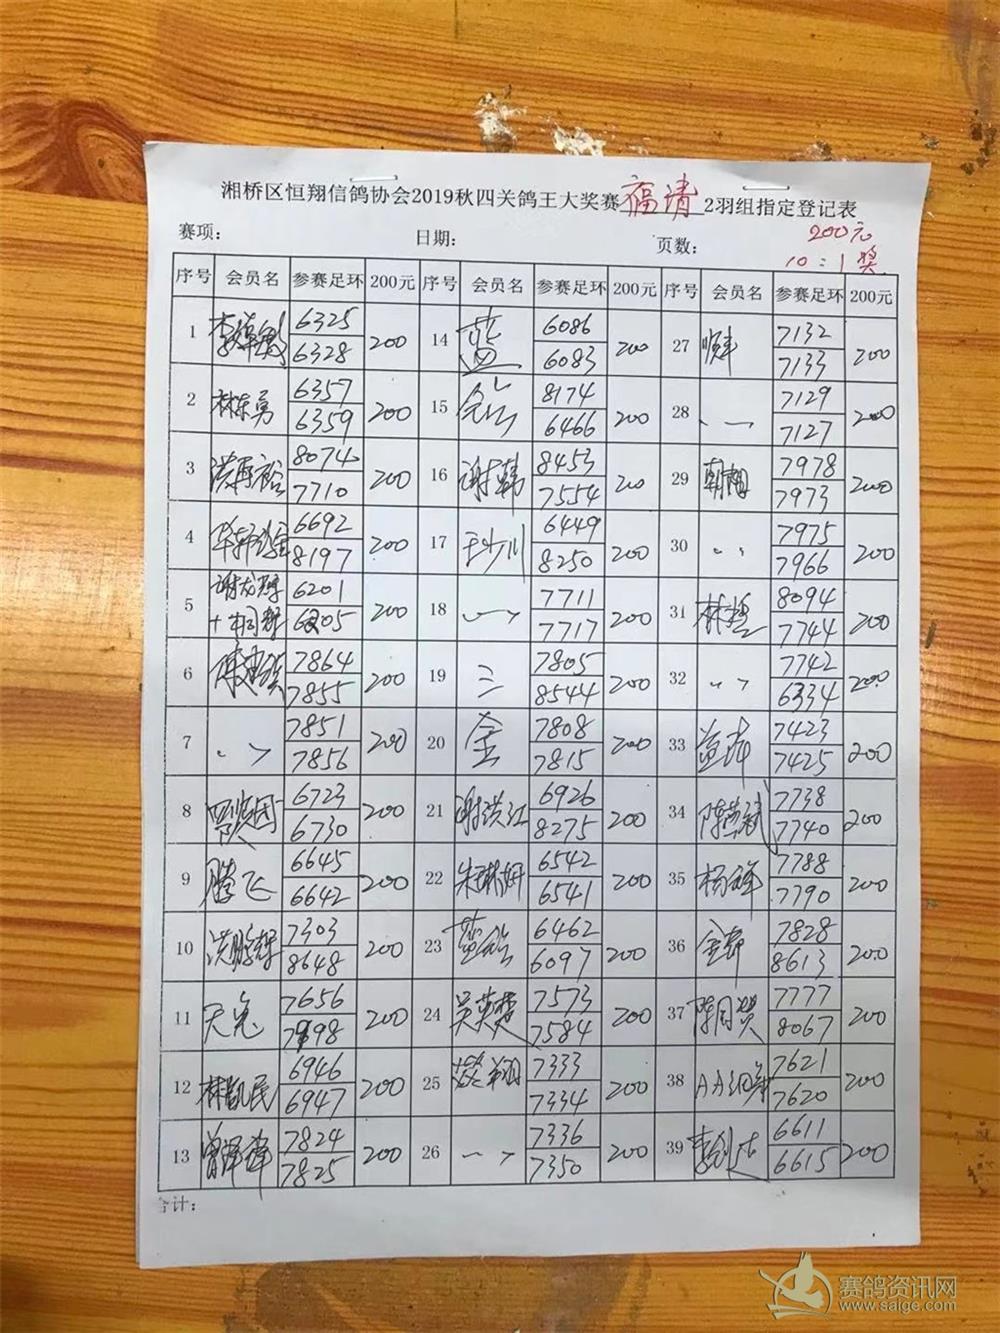 湘桥区恒翔信鸽协会2019秋四关鸽王大奖赛福清2羽组指定登记表
赛项: 日期: 页数: 200元
10:1奖
序号 会员名 参赛足环 200元 序号 会员名 参赛足环 200元 序号 会员名 参赛足环 200元
1 6325 6328 200 14 蓝 6086 6083 200 27 顺丰 7132 7133 200
2 林东勇 6357 6359 200 15 8174 6466 200 28 7129 7127 200
3 洪再裕 8074 7710 200 16 谢韩 8453 7554 200 29 朝阳 7978 7973 200
4 6692 8197 200 17 6449 8250 200 30 7975 7966 200
5 6201 6205 200 18 7711 7717 200 31 8094 7744 200
6 7864 7855 200 19 三 7805 8544 200 32 7742 6334 200
7 7851 7856 200 20 金 7808 7815 200 33 7423 7425 200
8 6723 6730 200 21 谢洪江 6926 8275 200 34 陈荣斌 7738 7740 200
9 腾飞 6645 6642 200 22 6542 6541 200 35 杨 7788 7790 200
10 洪鹏辉 7303 8648 200 23 6462 6097 200 36 7828 8613 200
11 7656 7998 200 24 吴英楚 7573 7584 200 37 7777 8067 200
12 林凯民 6946 6947 200 25 翔 7333 7334 200 38 AA 7621 7620 200
13 曾泽 7824 7825 200 26 7336 7350 200 39 6611 6615 200
合计:
赛鸽资讯网
www.saige.com